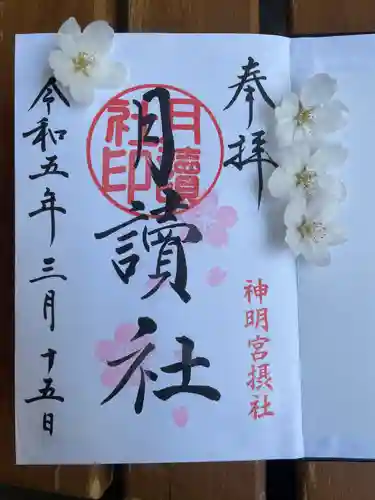 奉拝
神明宮摂社
月讀社
月讀社印
令和五年三月十五日